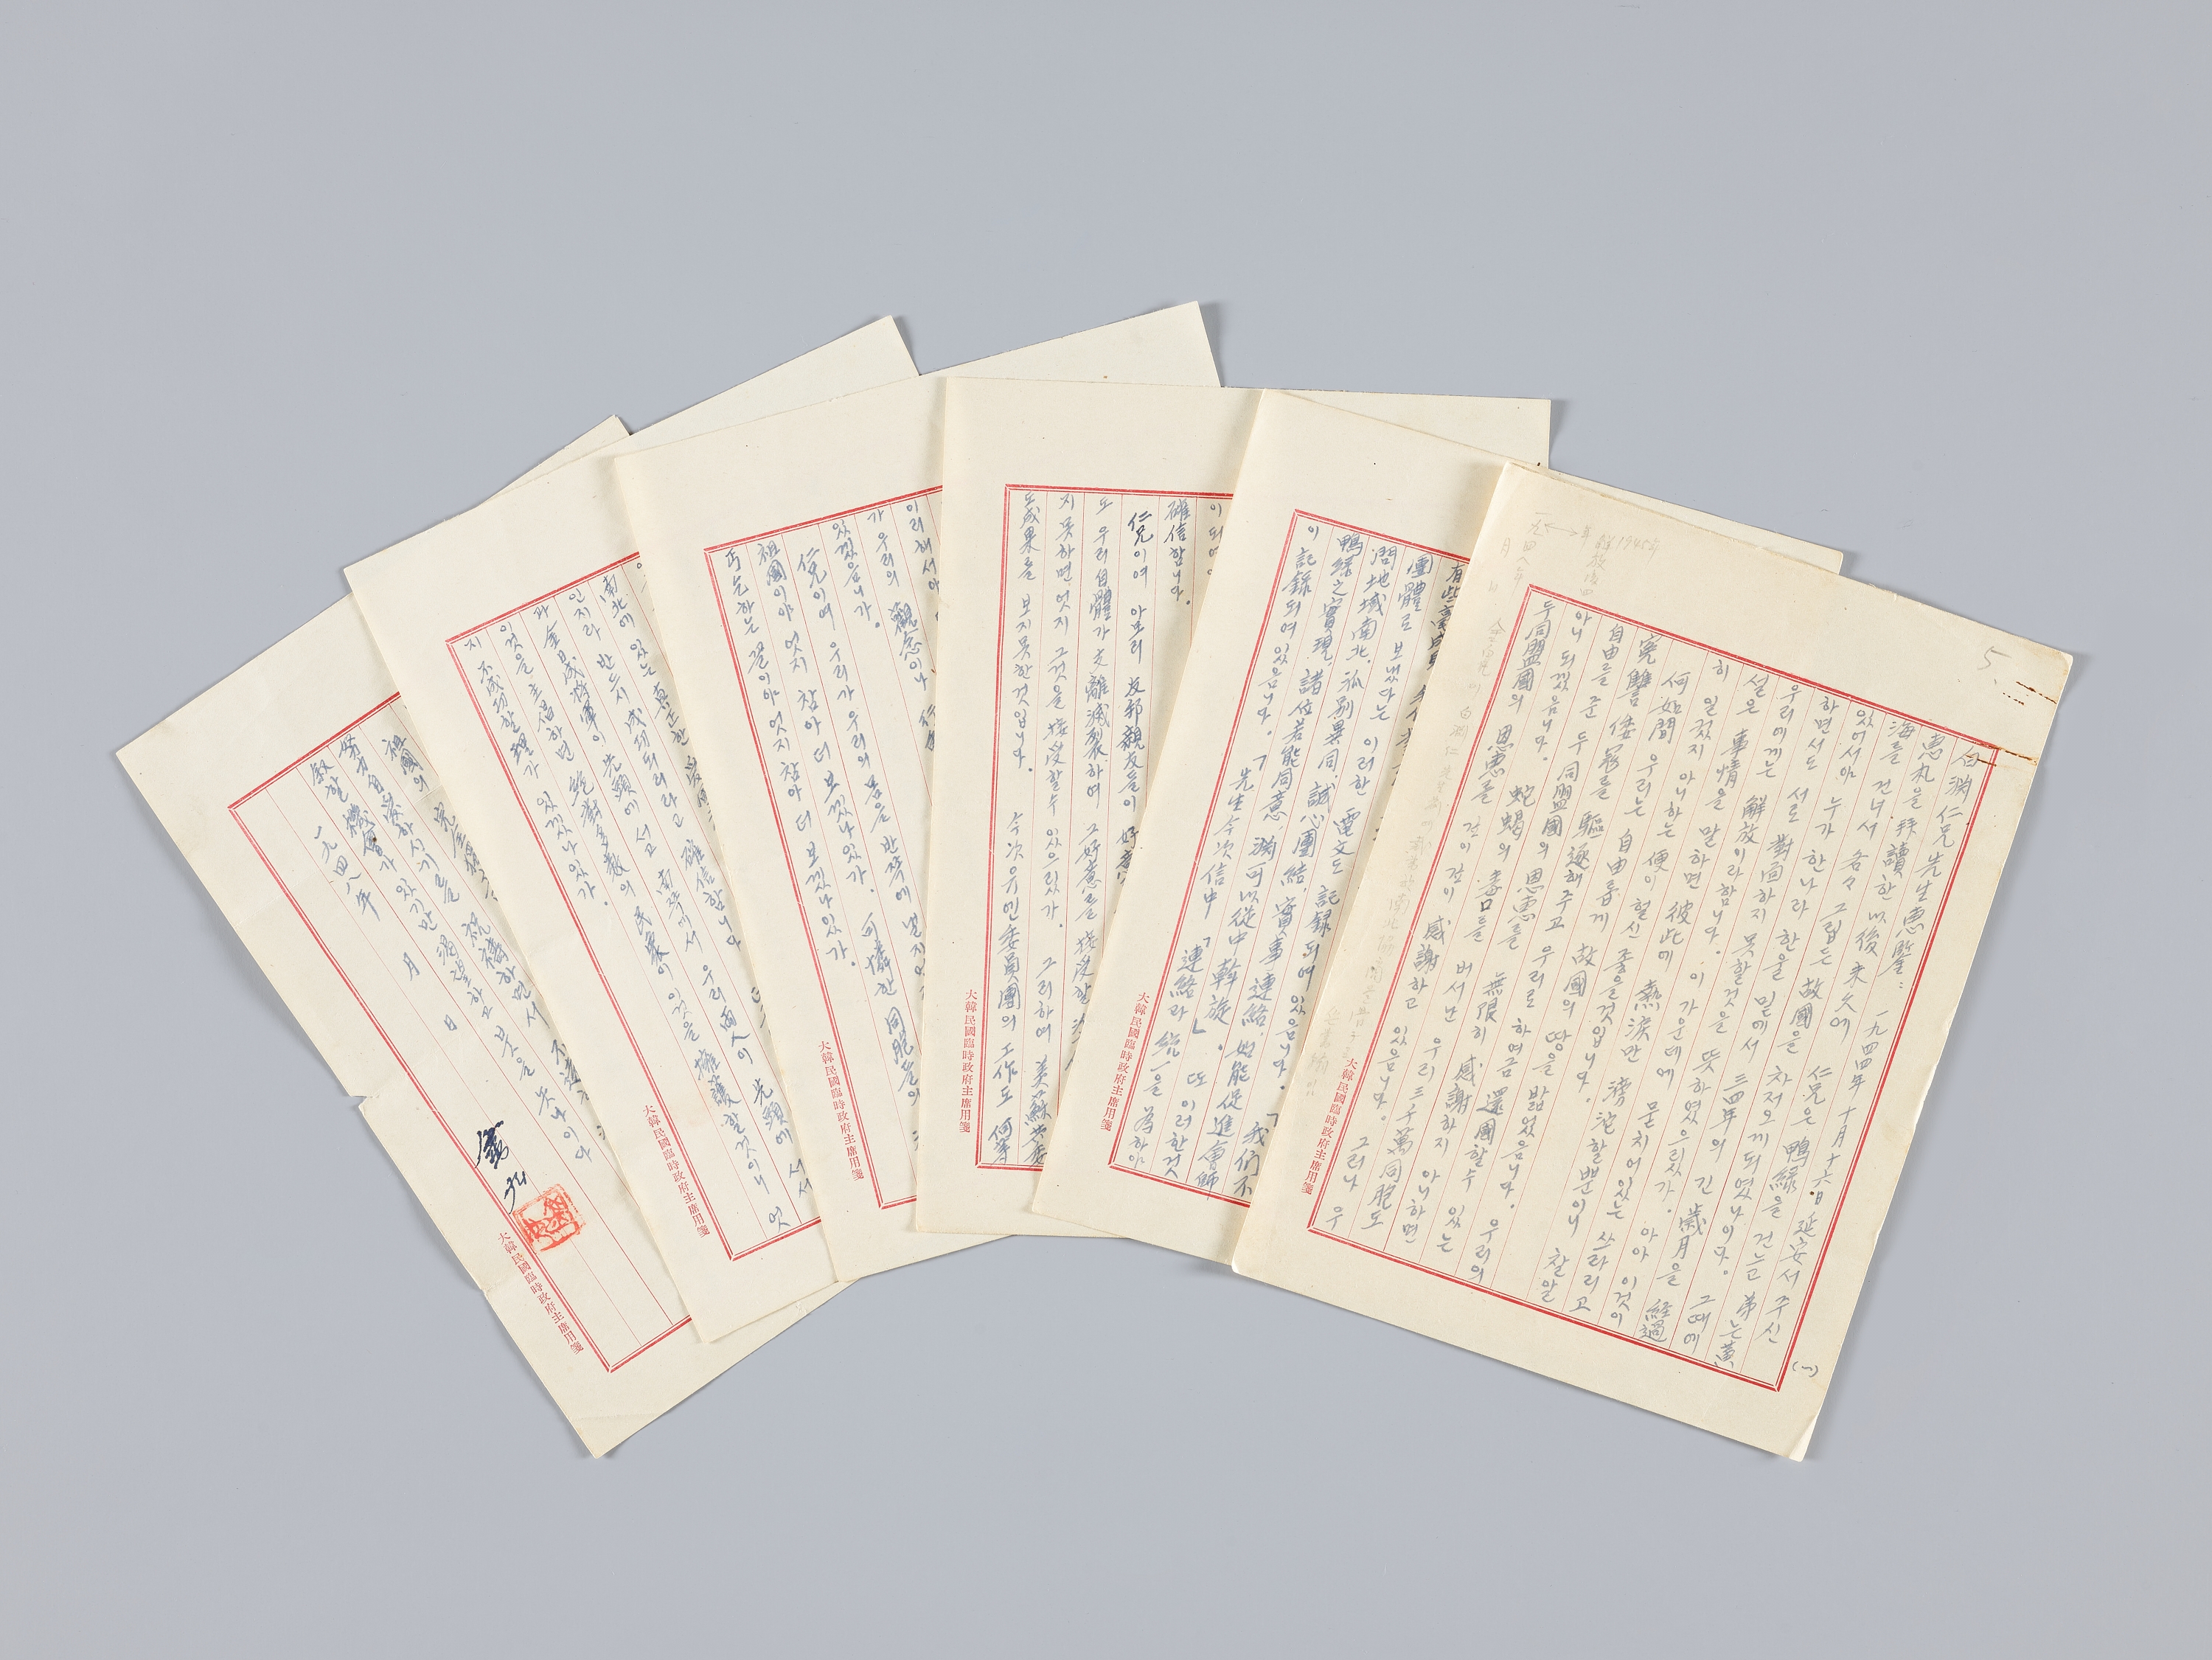 白淵仁兄先生惠鑒: 一九四四年十月十六日 延安서 주신
惠札을 拜讀한 以後 未久에 仁兄은 鴨綠을 건느고 弟는 黃
海를 건너서 各々 그립든 故國을 차저오게 되엿나이다。 그때에
있어서야 누가 한나라 한울 밑에서 三四年의 긴 歲月을 經過
하면서도 서로 對面하지 못할것을 뜻하엿으릿가。 아아 이것이
우리에게는 解放이라합니다。 이 가운데에 묻치어있는 쓰라리고
설은 事情을 말하면 彼此에 熱淚만 滂沱할뿐이니 찰알
히 일컷지 아니하는 便이 헐신 좋을것입니다。
何如間 우리는 自由롭게 故國의 땅을 밟엇음니다。 우리의
寃讐 倭寇를 驅逐해주고 우리로 하여금 還國할수 있는
自由를 준 두 同盟國의 恩惠를 無限히 感謝하지 아니하면
아니 되겠음니다。 蛇蝎의 毒口를 버서난 우리 三千萬同胞도
두同盟國의 恩惠를 깊이 깊이 感謝하고 있음니다。 그러나 우
(一)
5.
1945年
大韓民國臨時政府主席用箋
有些
團體로 보냈다는 이러한 電文도 記錄되여 있음니다。「我們不
問地域南北, 派別異同, 誠心團結, 實事連絡, 如能促進會師
鴨綠之實現, 諸位若能同意, 淵可以從中斡旋」。 또 이러한것
이 記錄되여 있음니다。「先生今次信中「連絡과 統一을 爲하야
大韓民國臨時政府主席用箋
이 되여야
確信합니다。
仁兄이여 아모리 友邦親友들이 好意
도 우리自體가 支離滅裂하여 그好意를 接受할
지못하면 엇지 그것을 接受할수 있으릿가。 그리하여 美蘇共委
도 成果를 보지못한것입니다。 今次 유엔委員團의 工作도 何等
大韓民國臨時政府主席用箋
이리해서야
가 우리의 觀念이나
있겠음니가。
仁兄이여 우리가 우리의 몸을 반쪽에 낼지
祖國이야 엇지 참아 더 보겠나잇가。 可憐한 同胞들의
丐乞하는 꼴이야 엇지 참아 더 보겠나잇가。
大韓民國臨時政府主席用箋
南北에 있는 眞正한 愛國
인지라 반드시 成功되리라고 確信합니다
과 金日成將軍이 先頭에 서고 南쪽에서 우리兩人이 先頭에 서서
이것을 主唱하면 絶對多數의 民衆이 이것을 擁護할것이니 엇
지 不成功할理가 있겠나잇가。
大韓民國臨時政府主席用箋
祖國의 完全
努力自愛하시기를 祝禱하면서
敍할 機會가 있기만 渴望하고 붓을 놋나이다
一九四八年 月 日
金九
大韓民國臨時政府主席用箋